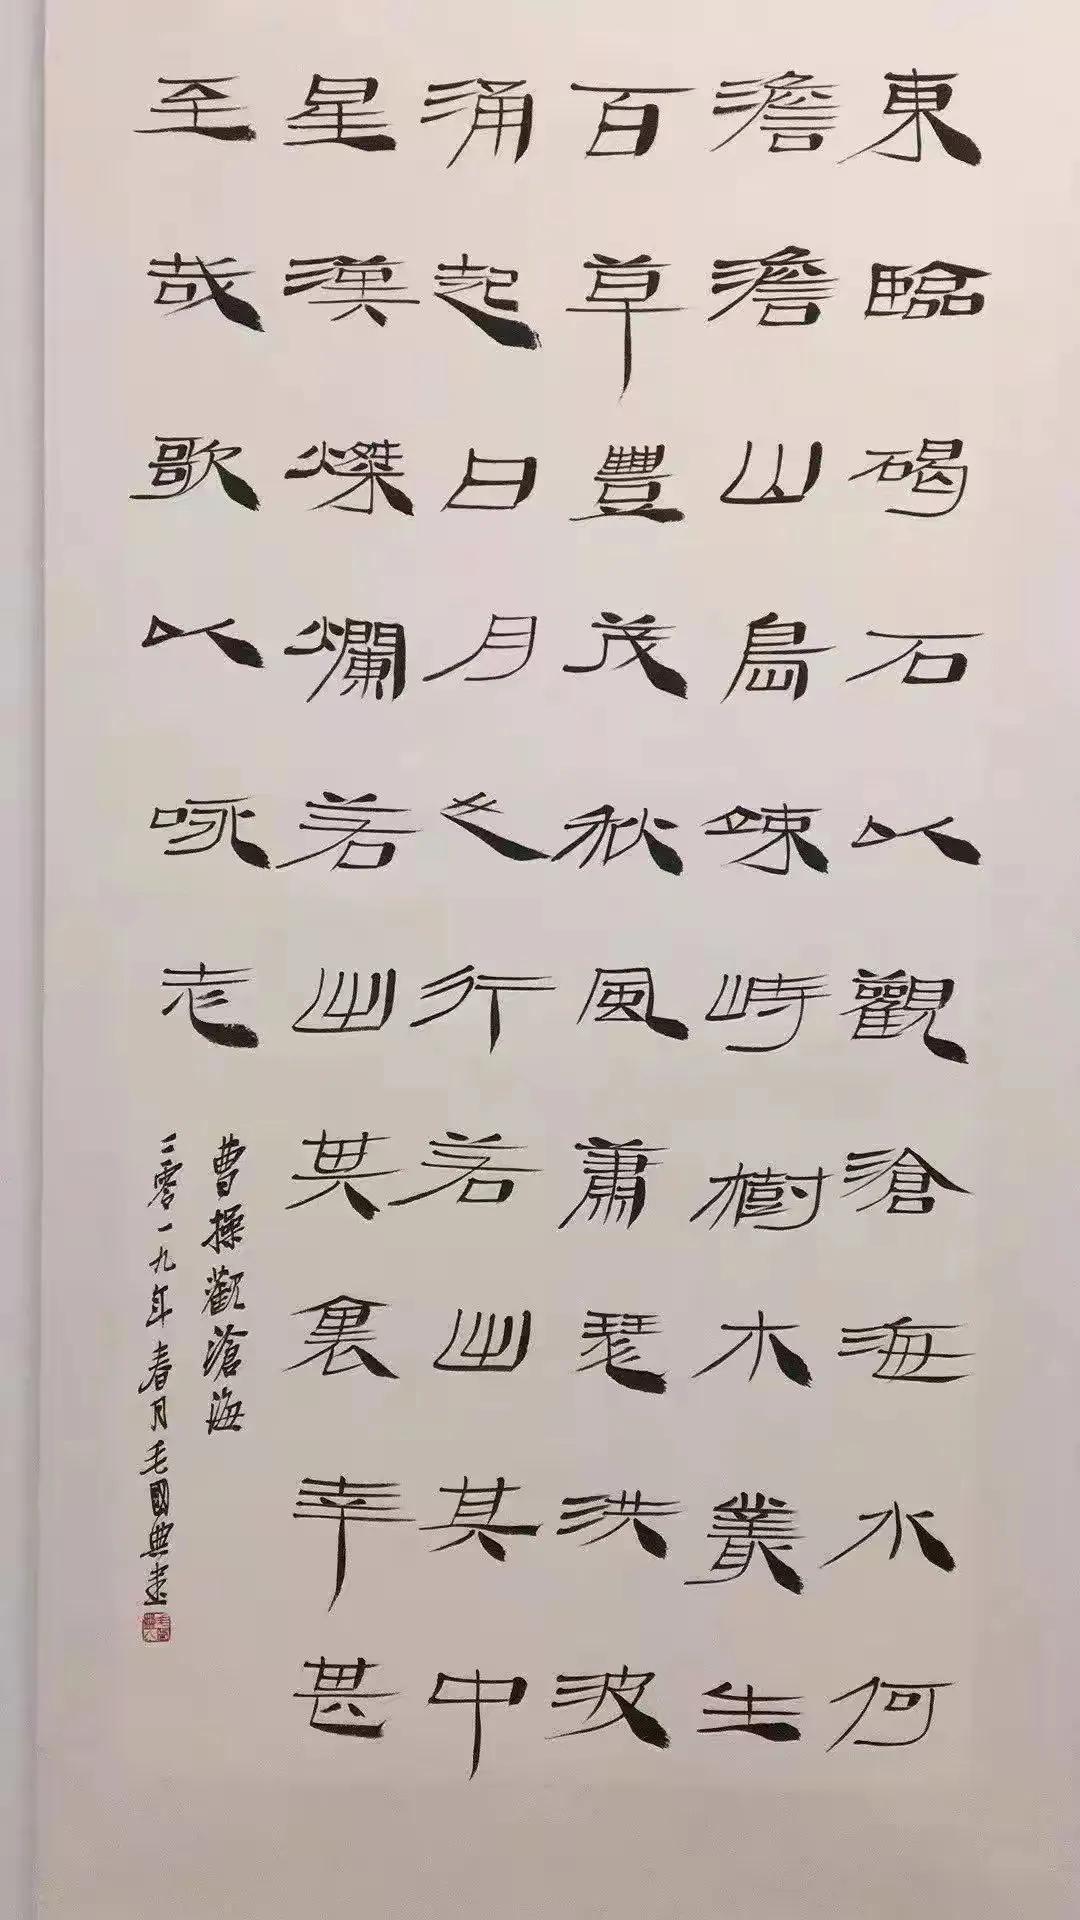 東臨碣石以觀滄海水何
澹澹山島竦峙樹木叢生
百草豐茂秋風蕭瑟洪波
涌起日月之行若出其中
星漢燦爛若出其裏幸甚
至哉歌以咏志
曹操觀滄海
二零一九年春月毛國典書